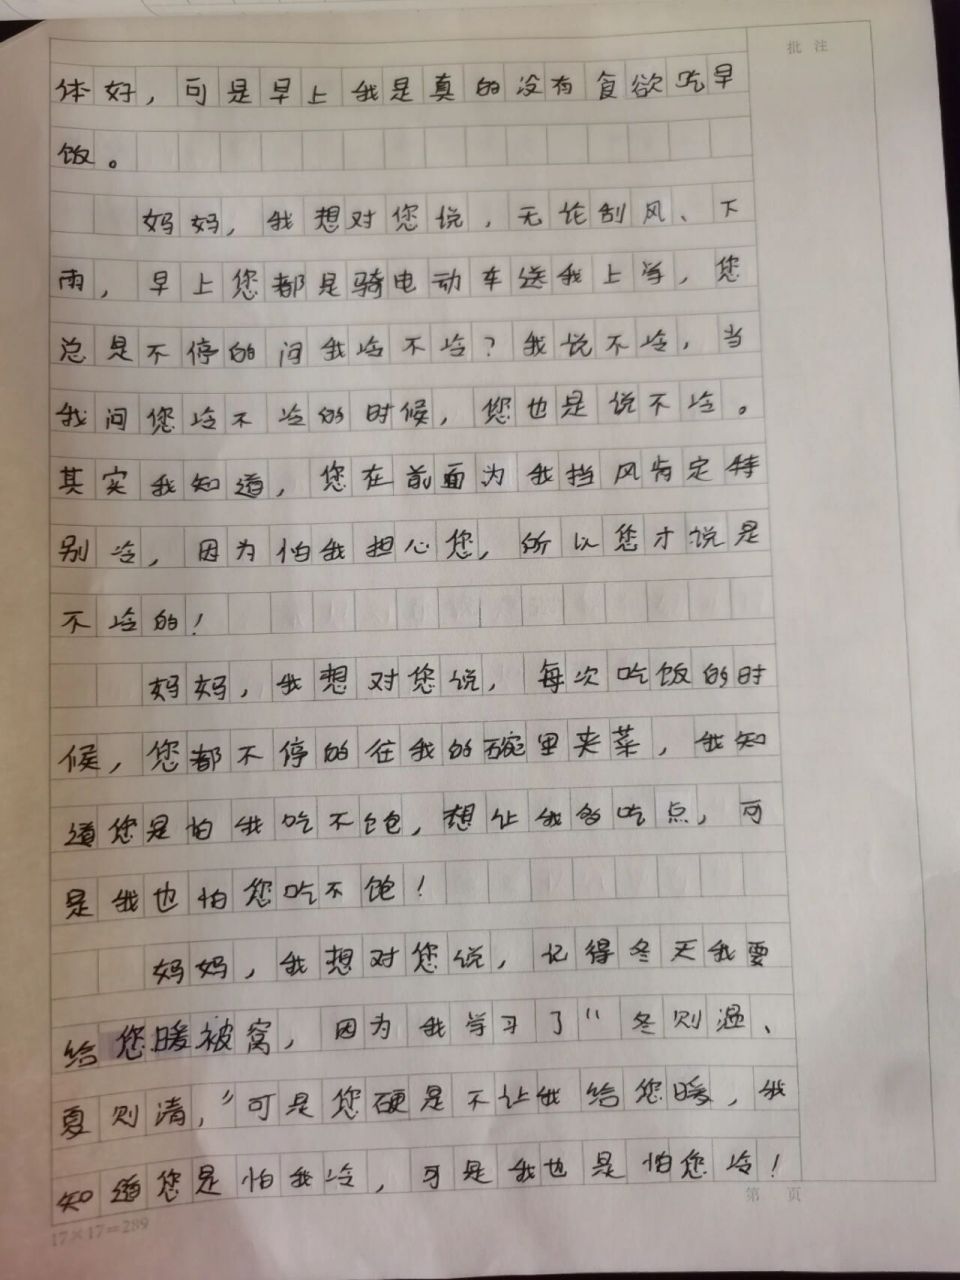 批 注
体好，可是早上我是真的没有食欲吃早
饭。
妈妈，我想对您说，无论刮风、下
雨，早上您都是骑电动车送我上学，您
总是不停的问我冷不冷？我说不冷，当
我问您冷不冷的时候，您也是说不冷。
其实我知道，您在前面为我挡风肯定特
别冷，因为怕我担心您，所以您才说是
不冷的！
妈妈，我想对您说，每次吃饭的时
候，您都不停的往我的碗里夹菜，我知
道您是怕我吃不饱，想让我多吃点，可
是我也怕您吃不饱！
妈妈，我想对您说，记得冬天我要
给您暖被窝，因为我学习了“冬则温、
夏则清，”可是您硬是不让我给您暖，我
知道您是怕我冷，可是我也是怕您冷！
第 页
17×17=289